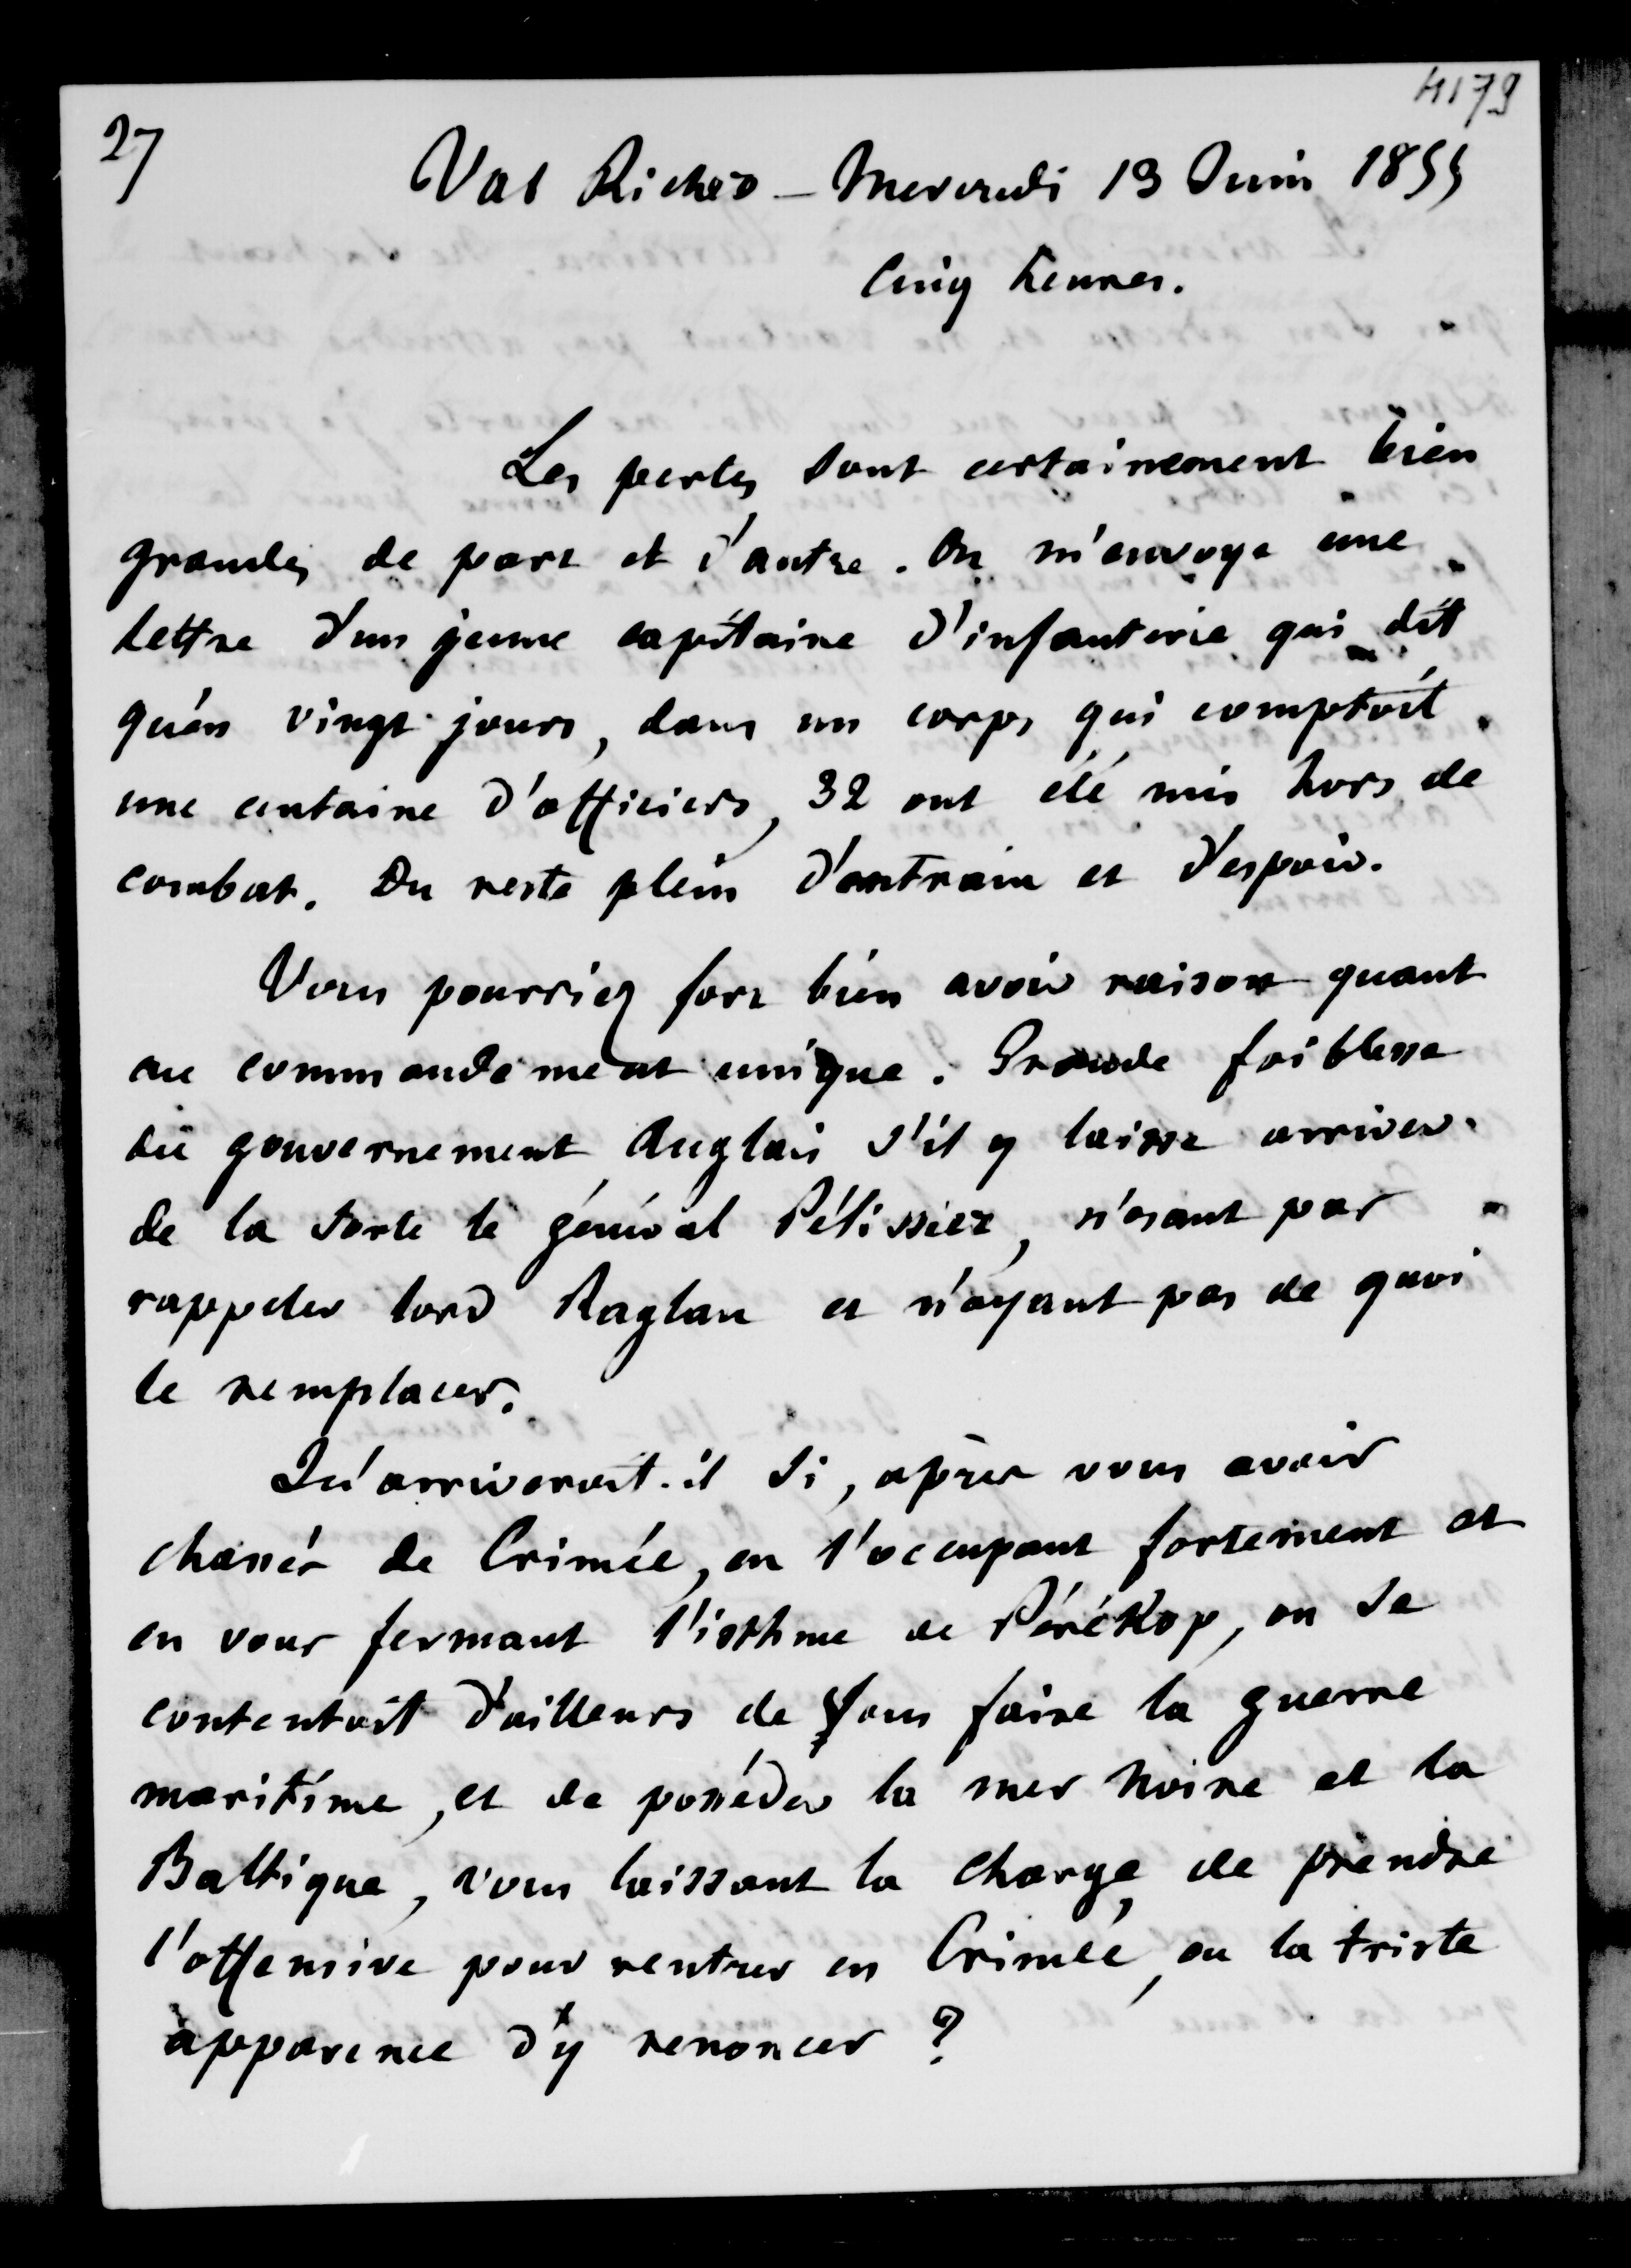 4179
27
Val Richer – Mercredi 13 Juin 1855
Cinq heures.
Les pertes sont certainement bien
grandes de part et d'autre. On m'envoye une
lettre d'un jeune capitaine d'infanterie qui dit
qu'en vingt jours, dans un corps qui comptoit
une centaine d'officiers, 32 ont été mis hors de
combat. Du reste plein d'entrain et d'espoir.
Vous pourriez fort bien avoir raison quant
au commandement unique. Grande faiblesse
du gouvernement Anglais s'il y laisse arriver
de la sorte le général Pélissier, n'osant pas
rappeler lord Raglan et n'ayant pas de quoi
le remplacer.
Qu'arriveroit-il si, après vous avoir
chassés de Crimée, en l'occupant fortement et
en vous fermant l'isthme de Pérékop, on se
contentoit d'ailleurs de vous faire la guerre
maritime, et de posséder la mer Noire et la
Baltique, vous laissant la charge de prendre
l'offensive pour rentrer en Crimée, ou la triste
apparence d'y renoncer ?